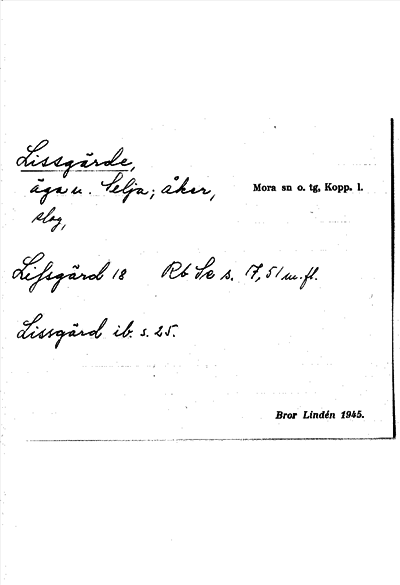 Lissgärde,
äga u. Selja; åker,
Mora sn o. tg, Kopp. l.
slog,
Lissgärd 18 Rb Se s. 17, 51 m. fl.
Lissgärd ib. s. 25.
Bror Lindén 1945.